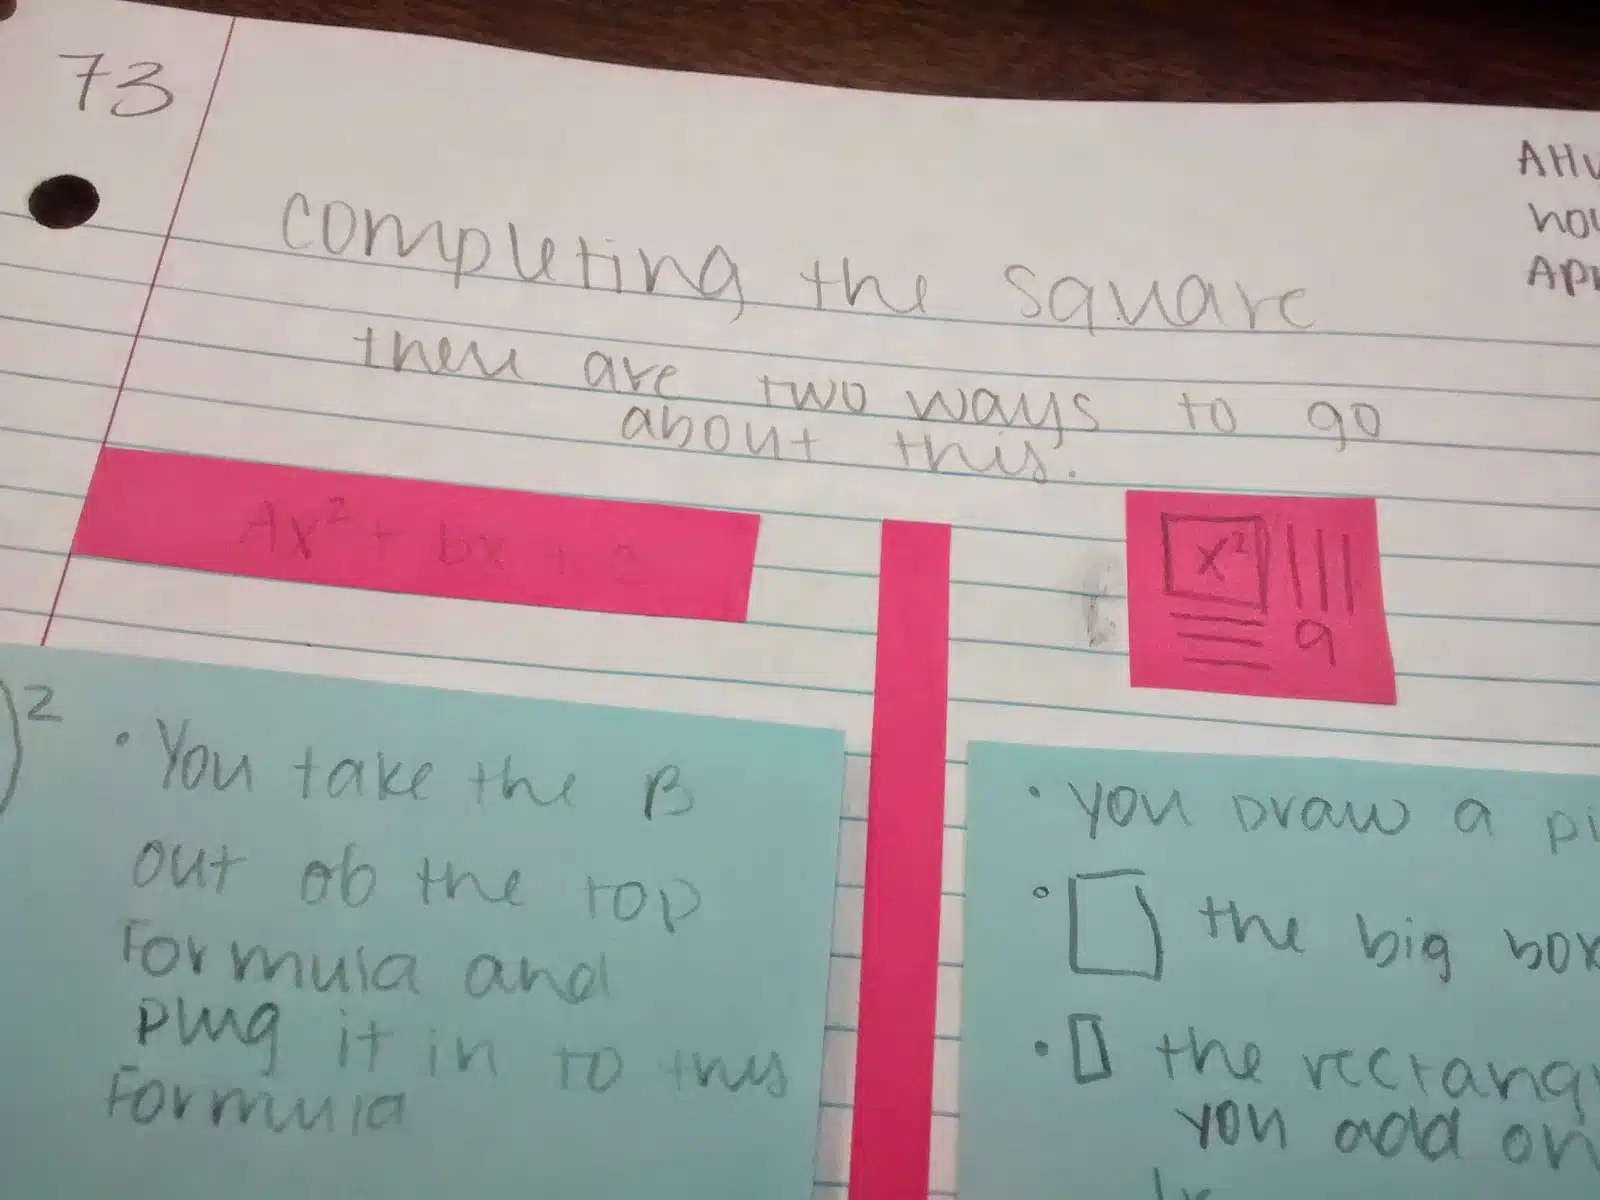 73
completing the square
there are two ways to go
about this.
Ax² + bx + c
x²
9
)²
• You take the B
out of the top
Formula and
plug it in to this
Formula
• you Draw a
• the big box
• the
you add on